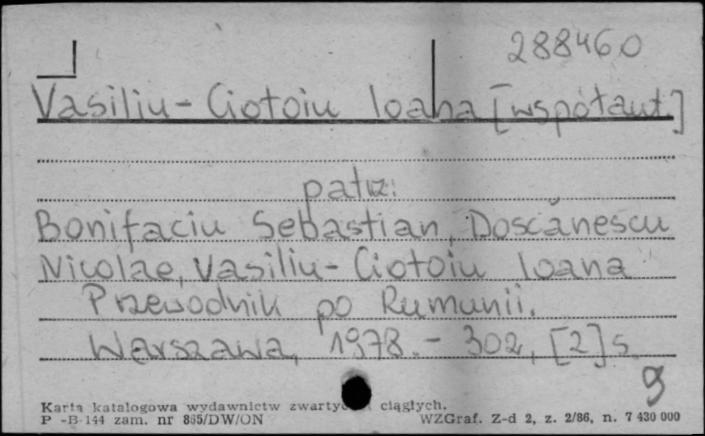 288460
Vasiliu-Ciotoiu Ioana [współaut.]
patrz:
Bonifaciu Sebastian, Doscănescu
Nicolae, Vasiliu-Ciotoiu Ioana
Przewodnik po Rumunii.
Warszawa, 1978. - 302, [2] s.
9
Karta katalogowa wydawnictw zwartych ciągłych.
P -B-144 zam. nr 865/DW/ON WZGraf. Z-d 2, z. 2/86, n. 7 430 000